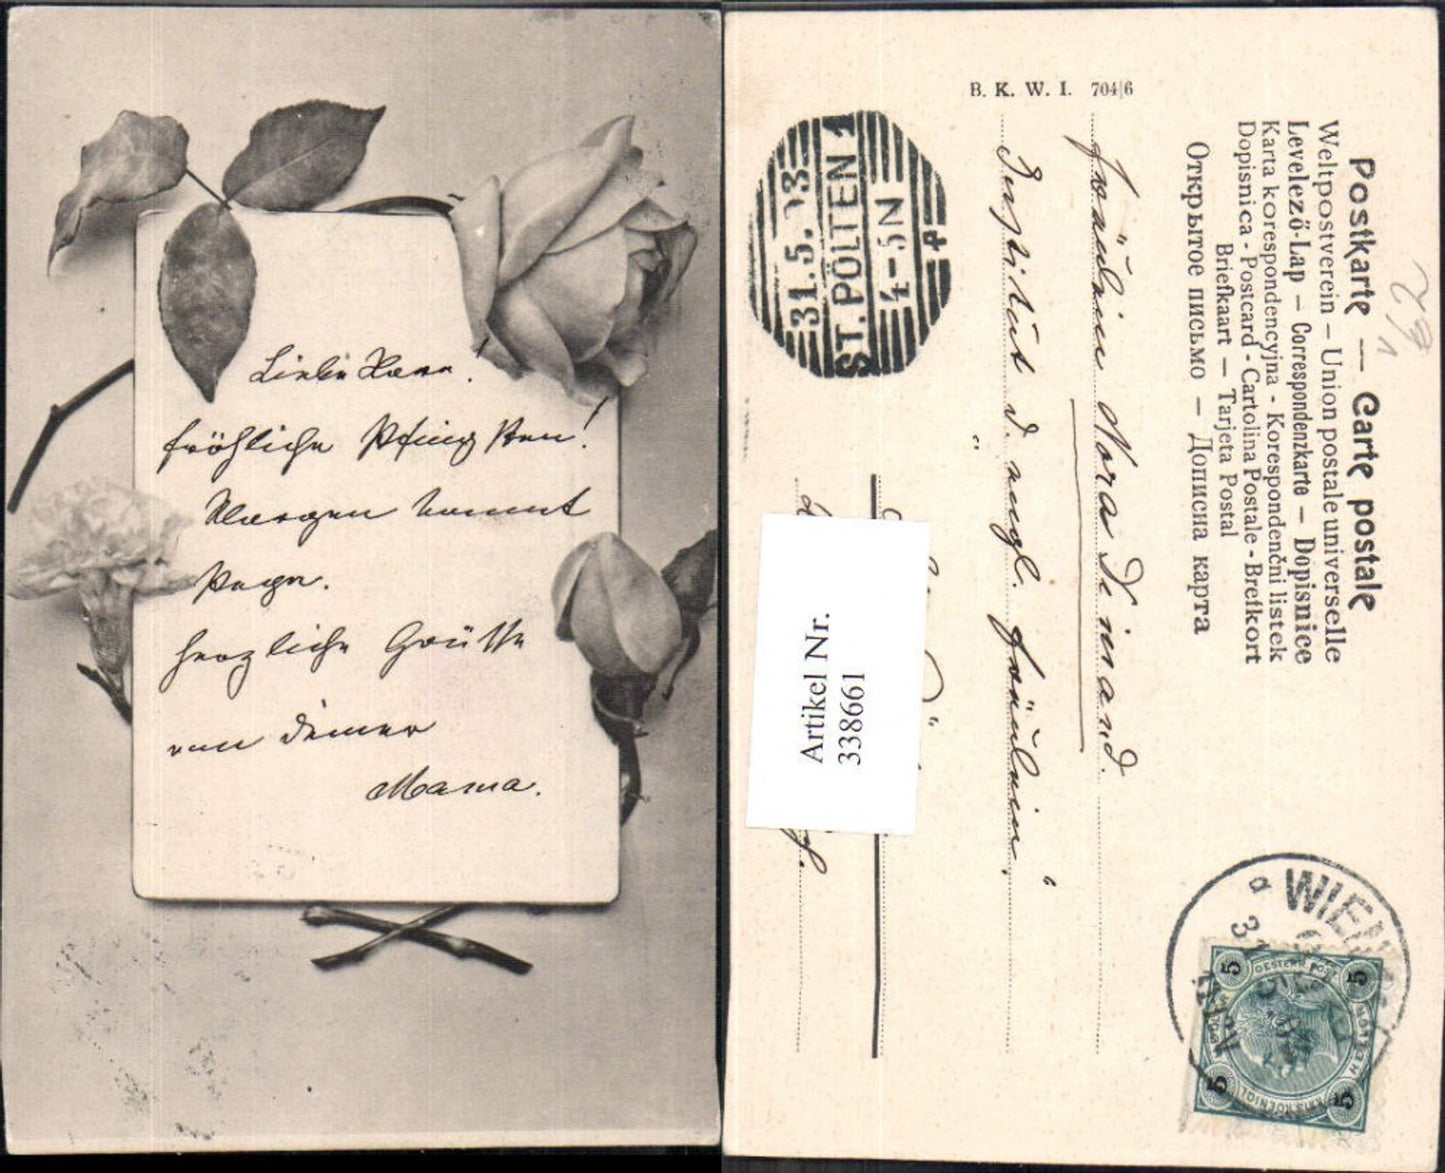 Liebe Nora!
fröhliche Pfingsten!
Morgen kommt
Papa.
herzliche Grüße
von Deiner
Mama.
B. K. W. I. 704/6
Postkarte — Carte postale
Weltpostverein – Union postale universelle
Levelező-Lap – Correspondenzkarte – Dopisnice
Karta korespondencyjna - Korespondenční listek
Dopisnica - Postcard - Cartolina Postale - Brefkort
Briefkaart — Tarjeta Postal
Открытое письмо — Дописна карта
Fräulein Nora Dinand.
Institut d. engl. Fräulein"
ST. PÖLTEN 1
31.5.03
4-5N
Artikel Nr.
338661
WIEN
5 5
5 5